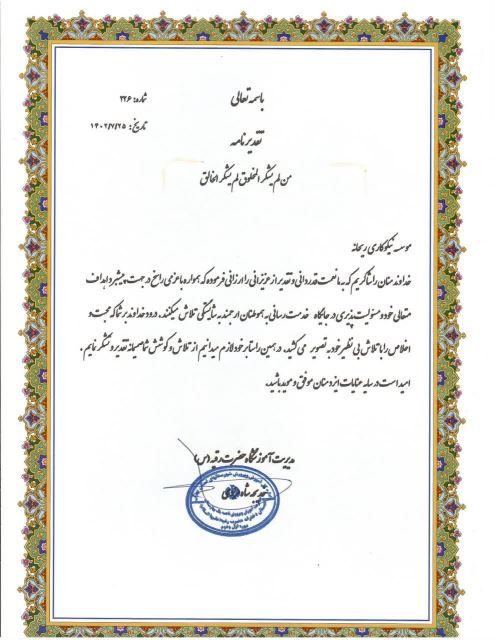 باسمه تعالی
شماره: ۳۲۶
تاریخ: ۱۴۰۲/۷/۲۵
تقدیرنامه
من لم یشکر المخلوق لم یشکر الخالق
موسسه نیکوکاری ریحانه
خداوند منان را شاکریم که به ما نعمت قدردانی و تقدیر از عزیزانی را ارزانی فرموده که همواره با عزمی راسخ در جهت پیشبرد اهداف
متعالی خود و مسئولیت پذیری در جایگاه خدمت رسانی به هموطنان ارجمند به شایستگی تلاش میکنند. درود خداوند بر شما که محبت و
اخلاص را با تلاش بی نظیر خود به تصویر می کشید. در همین راستا بر خود لازم میدانیم از تلاش و کوشش شما صمیمانه تقدیر و تشکر نمایم.
امید است در سایه عنایات ایزد منان موفق و موید باشید.
مدیریت آموزشگاه حضرت رقیه (س)
خدیجه شاه